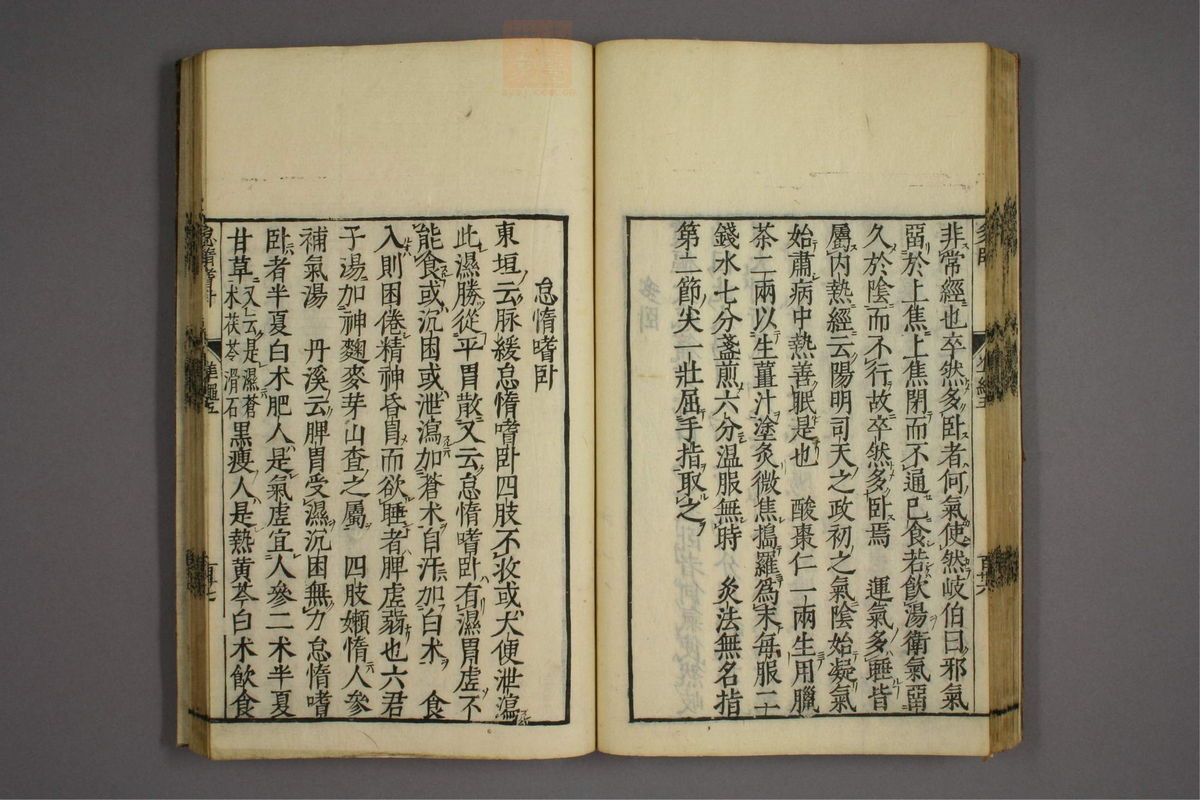 非常經也卒然多卧者何氣使然岐伯曰邪氣
畱於上焦上焦閉而不通已食若飲湯衛氣畱
久於陰而不行故卒然多卧焉　運氣多睡皆
屬內熱經云陽明司天之政初之氣陰始凝氣
始肅病中熱善眠是也　酸棗仁一兩生用臘
茶二兩以生薑汁塗炙微焦搗羅爲末每服二
錢水七分盞煎六分温服無時　灸法無名指
第二節尖一壯屈手指取之
怠惰嗜卧
東垣云脉緩怠惰嗜卧四肢不收或大便泄瀉
此濕勝從平胃散又云怠惰嗜卧有濕胃虛不
能食或沉困或泄瀉加蒼术自汗加白术　食
入則困倦精神昏冒而欲睡者脾虛弱也六君
子湯加神麴麥芽山查之屬　四肢嬾惰人參
補氣湯　丹溪云脾胃受濕沉困無力怠惰嗜
卧者半夏白术肥人是氣虛宜人參二术半夏
甘草又云是濕蒼术茯苓滑石黑瘦人是熱黄芩白术飲食
怠惰嗜卧
準繩五